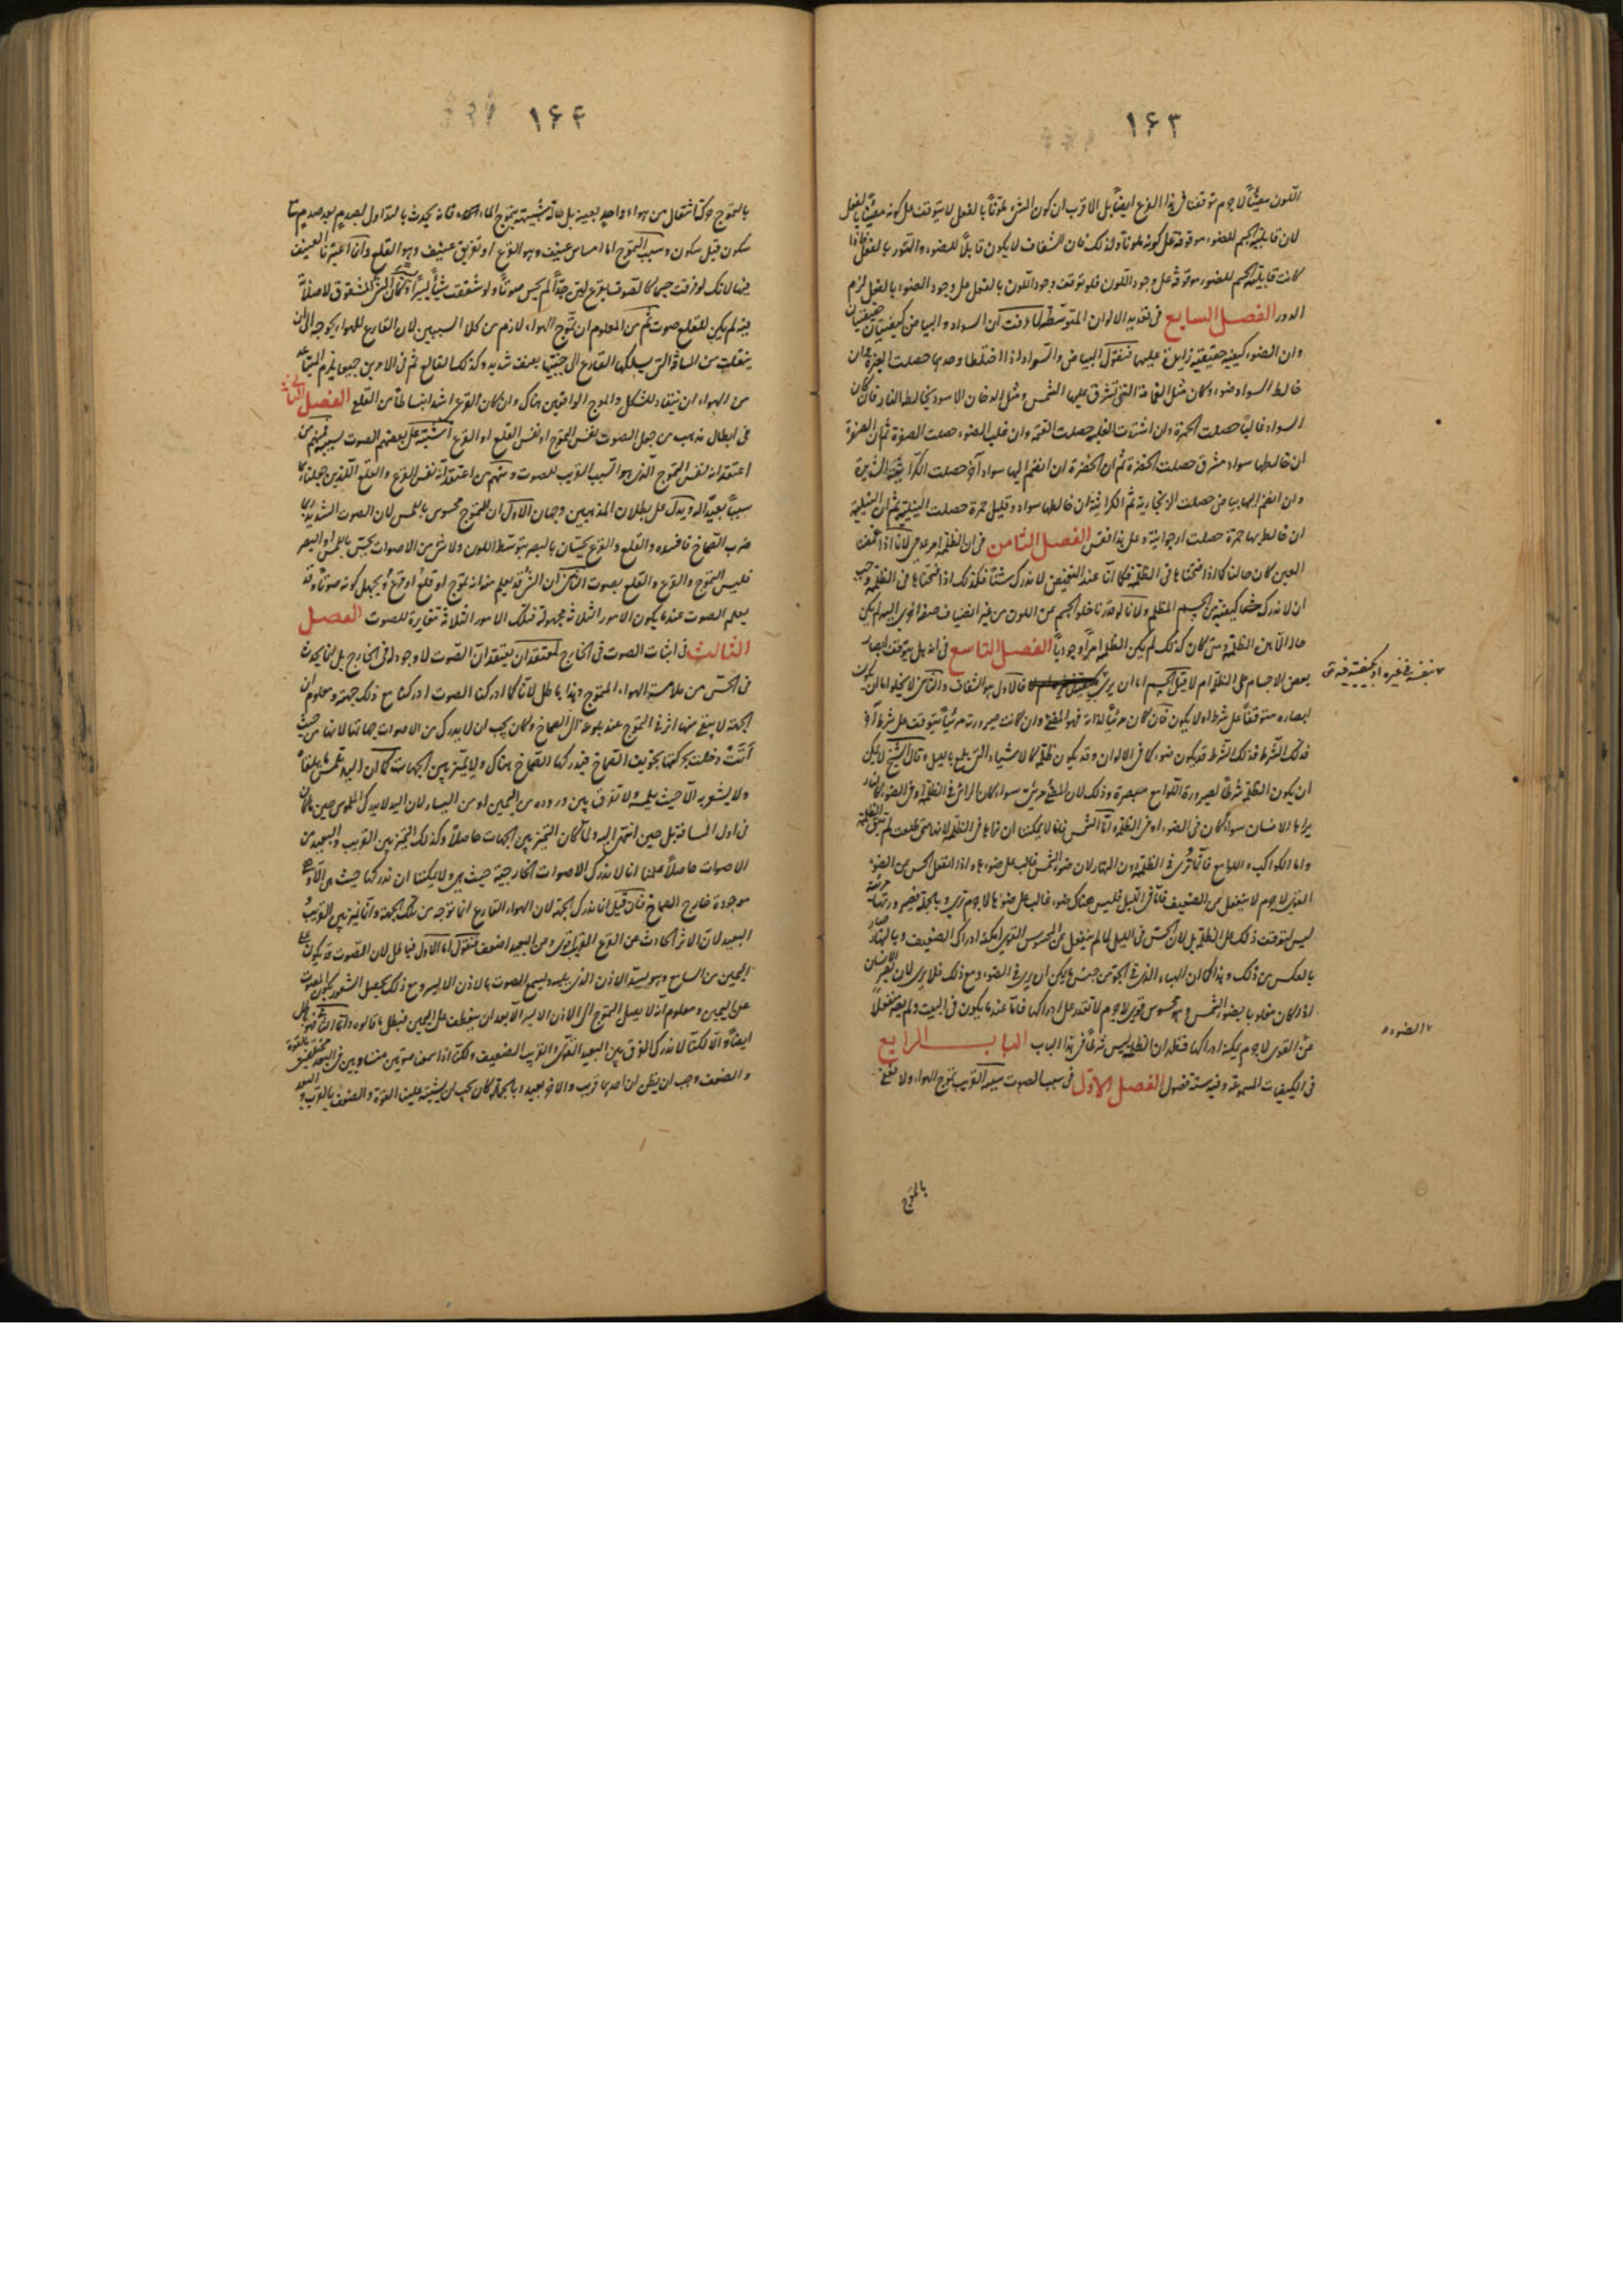 ١۶٣
اللون معينا لا جرم توقف فى هذا النوع ايضا بل الاقرب ان كون الشئ ملونا بالفعل لا يتوقف على كونه مضيئا بالفعل
لان قابلية الجسم للضوء موقوفة على كونه ملونا ولذلك فان الشفاف لا يكون قابلا للضوء والنور بالفعل فاذا
كانت قابلية الجسم للضوء موقوفة على وجود اللون فلو توقف وجود اللون بالفعل على وجود الضوء بالفعل لزم
الدور الفصل السابع فى تعديد الالوان المتوسطة لما عرفت ان السواد والبياض كيفيتان حقيقيتان
وان الضوء كيفية حقيقية زايدة عليها فنقول البياض والسواد اذا اختلطا وحدهما حصلت الغبرة وان
خالط السواد ضوء وكان مثل الغمامة التى تشرق عليها الشمس ومثل الدخان الاسود يخالطه النار فان كان
السواد غالبا حصلت الحمرة وان اشتدت الغلبة حصلت القتمة وان غلب الضوء حصلت الصفرة ثم ان الصفرة
ان خالطها سواد مشرق حصلت الخضرة ثم ان الخضرة ان انضم اليها سواد آخر حصلت الكراثية الشديدة
وان انضم اليها بياض حصلت الزنجارية ثم الكراثية ان خالطها سواد وقليل حمرة حصلت النيلية ثم ان النيلية
ان خالطها حمرة حصلت ارجوانية وعلى هذا فقس الفصل الثامن فى ان الظلمة امر عدمى لانا اذا غمضنا
العين كان حالنا كما اذا فتحناها فى الظلمة فكما انا عند التغميض لا ندرك شيئا فكذلك اذا فتحناها فى الظلمة وجب
ان لا ندرك كيفية فى الجسم المظلم ولانا لو قدرنا خلو الجسم عن اللون من غير انضياف صفة اخرى اليه لم يكن
حاله الا هذه الظلمة ومتى كان كذلك لم يكن الظلمة امرا وجوديا الفصل التاسع فى انه هل يتوقف ابصار
بعض الاجسام على الظلمة ام لا فنقول الجسم اما ان يرى فالاول هو الشفاف والثانى لا يخلو اما ان يكون
ابصاره متوقفا على شرط او لا يكون فان كان مرئيا لذاته فهو المضئ وان كانت صيرورته مرئيا يتوقف على شرط آخر
فذلك الشرط قد يكون ضوء كما فى الالوان وقد يكون ظلمة كالاشياء التى يلمع بالليل وقال الشيخ لا يمكن
ان يكون الظلمة شرطا لصيرورة اللوامع مبصرة وذلك لان المضئ مرئى سواء كان الرائى فى الظلمة او فى الضوء كالنار
يراها الانسان سواء كان فى الضوء او فى الظلمة واما الشمس فانما لا يمكننا ان نراها فى الظلمة لانها متى طلعت لم تبق الظلمة
واما الكواكب واللوامع فانما ترى فى الظلمة دون النهار لان ضوء الشمس غالب على ضوءها واذا انفعل الحس عن الضوء
القوى لا جرم لا ينفعل عن الضعيف فاما فى الليل فليس هناك ضوء غالب على ضوئها لا جرم ترى وبالجملة فصيرورتها مرئية
ليس لتوقف ذلك على الظلمة بل لان الحس فى الليل لما لم ينفعل عن المحسوس القوى امكنه ادراك الضعيف وبالنهار صار
بالعكس من ذلك وهذا كما ان الهباء الذى فى الجو من جنس ما يمكن ان يرى فى الضوء ومع ذلك فلا يرى لان بصر الانسان
اذا كان مغلوبا بضوء الشمس وهو محسوس قوى لا جرم لا نقدر على ادراكها فاما عندما يكون فى البيت ولم يصر منفعلا
عن القوى لا جرم يمكنه ادراكها فظهر ان الظلمة ليس شرطا فى هذا الباب الباب الرابع
فى الكيفيات المسموعة وفيه ستة فصول الفصل الاول فى سبب الصوت سببه القريب تموج الهواء ولا نعنى
بالتموج
الضوء
١۶۴
بالتموج حركة انتقال من هواء واحد بعينه بل حالة شبيهة بتموج الماء فانه يحدث بالتداول بصدم بعد صدم مع
سكون قبل سكون وسبب التموج اما امساس عنيف وهو القرع او تفريق عنيف وهو القلع وانما اعتبرنا العنيف
فيهما لانك لو قرعت جسما كالصوف بقرع لين جدا لم يحس صوتا ولو شققت شيئا يسيرا وكان الشئ المشقوق لا صلابة
فيه لم يكن للقلع صوت ثم من المعلوم ان تموج الهواء لازم من كلا السببين لان القارع للهواء يحوجه الى ان
ينفلت من المسافة التى يسلكها القارع الى جنبيها بعنف شديد وكذلك القالع ثم فى الامرين جميعا يلزم المتباعد
من الهواء ان ينقاد للشكل والموج الواقعين هناك وان كان القرع اشد انبساطا من القلع الفصل الثانى
فى ابطال مذهب من جعل الصوت نفس التموج او نفس القلع او القرع اشتبه على بعضهم الصوت بسببه فمنهم من
اعتقد انه نفس التموج الذى هو السبب القريب للصوت ومنهم من اعتقد انه نفس القرع والقلع اللذين جعلناهما
سببا بعيدا له ويدل على بطلان المذهبين وجهان الاول ان التموج محسوس باللمس لان الصوت الشديد ربما
ضرب الصماخ فافسده والقلع والقرع يحسان بالبصر بتوسط اللون ولا شئ من الاصوات يحس باللمس او البصر
فليس التموج والقرع والقلع بصوت الثانى ان الشئ قد يعلم منه انه تموج او قلع او قرع ويجهل كونه صوتا وقد
يعلم الصوت عندما يكون الامور الثلاثة مجهولة فتلك الامور الثلاثة مغايرة للصوت الفصل
الثالث فى اثبات الصوت فى الخارج لمعتقد ان يعتقد ان الصوت لا وجود له فى الخارج بل انما يحدث
فى الحس من ملامسة الهواء المتموج وهذا باطل لانا كما ادركنا الصوت ادركنا مع ذلك جهته ومعلوم ان
الجهة لا يبقى منها اثر فى التموج عند بلوغه الى الصماخ وكان يجب ان لا يدرك من الاصوات جهاتها لانها من حيث
أتت دخلت بحركتها تجويف الصماخ فيدركها الصماخ هناك ولا يتميز بين الجهات كما ان اليد تلمس ما يلقاه
ولا يشعر به الا حيث يلمسه ولا تفرق بين وروده من اليمين او من اليسار لان اليد لا يدرك الملموس حين ما كان
فى اول المسافة بل حين انتهى اليه ولما كان التميز بين الجهات حاصلا وكذلك التميز بين القريب والبعيد من
الاصوات حاصلا علمنا انا لا ندرك الاصوات الخارجية حيث هى ولا يمكننا ان ندركها حيث هى الا وهى
موجودة خارج الصماخ فان قيل انا ندرك الجهة لان الهواء القارع انما توجه من تلك الجهة وانما نميز بين القريب و
البعيد لان الاثر الحادث عن القرع القريب اقوى ومن البعيد اضعف فنقول اما الاول فباطل لان الصوت قد يكون على
اليمين من السامع وهو يسد الاذن الذى يليه ويسمع الصوت بالاذن الايسر ومع ذلك يحصل الشعور بكون الصوت
على اليمين ومعلوم انه لا يصل التموج الى الاذن الايسر الا بعد ان ينعطف على اليمين فبطل ما قالوه واما الثانى فهو باطل
ايضا والا لكنا لا ندرك الفرق بين البعيد القوى والقريب الضعيف ولكنا اذا سمعنا صوتين متساويين فى البعد مختلفين بالقوة
والضعف وجب ان يظن ان احدهما قريب والاخر بعيد وبالجملة كان يجب ان يشتبه علينا القوة والضعف بالقرب والبعد